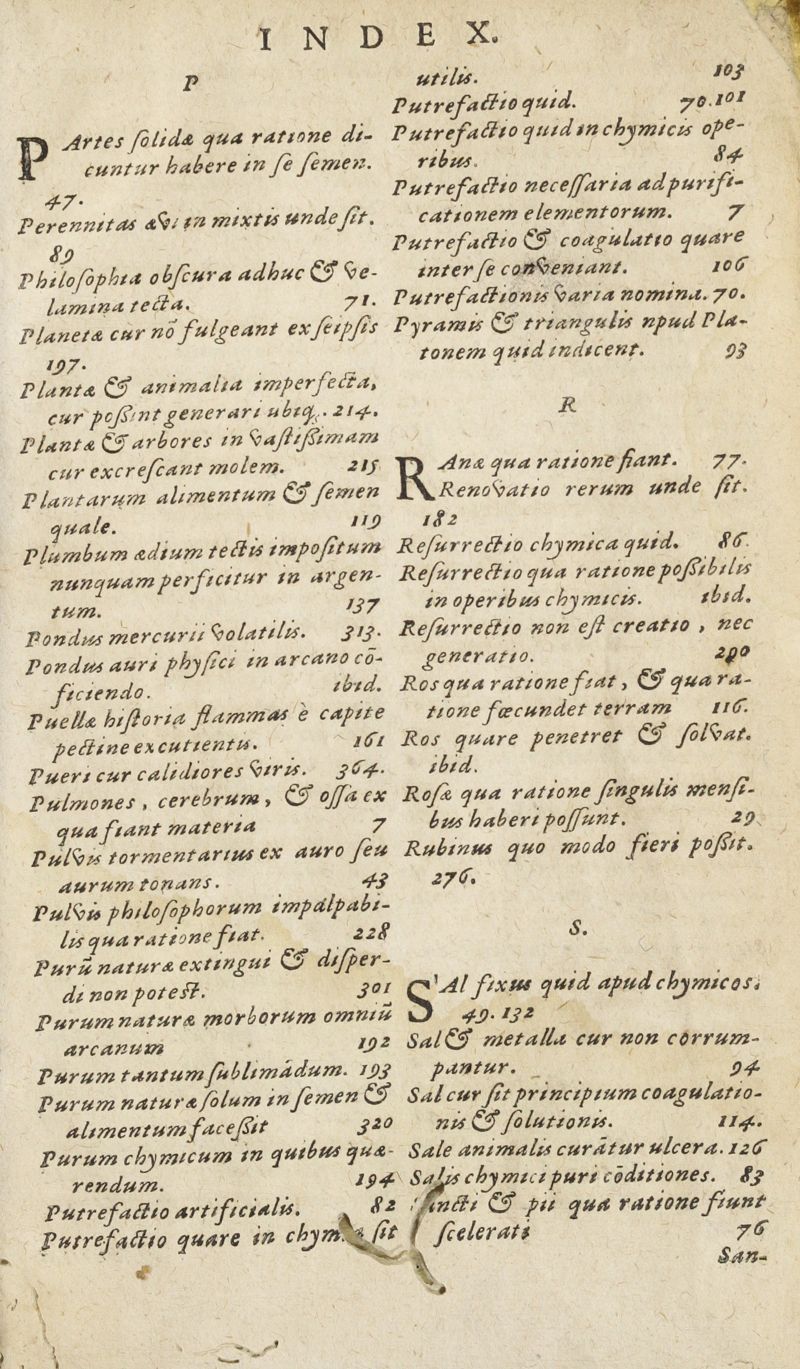 INDEX.
P
PArtes ſolidæ qua ratione di-
cuntur habere in ſe ſemen.
47.
Perennitas ævi in mixtis unde ſit.
89
Philoſophia obſcura adhuc & ve-
lamina tecta. 71.
Planetæ cur nō fulgeant ex ſeipſis
197.
Plantæ & animalia imperfecta,
cur poſſint generari ubiq;. 214.
Plantæ & arbores in vaſtiſſimam
cur excreſcant molem. 215
Plantarum alimentum & ſemen
quale. 119
Plumbum ædium tectis impoſitum
nunquam perficitur in argen-
tum. 137
Pondus mercurii volatilis. 313.
Pondus auri phyſici in arcano cō-
ficiendo. ibid.
Puellæ hiſtoria flammas è capite
pectine excutientis. 161
Pueri cur calidiores viris. 364.
Pulmones, cerebrum, & oſſa ex
qua fiant materia 7
Pulvis tormentarius ex auro ſeu
aurum tonans. 43
Pulvis philoſophorum impalpabi-
lis qua ratione fiat. 228
Purū naturæ extingui & diſper-
di non poteſt. 301
Purum naturæ morborum omniū
arcanum 192
Purum tantum ſublimādum. 193
Purum naturæ ſolum in ſemen &
alimentum faceſſit 320
Purum chymicum in quibus quæ-
rendum. 194
Putrefactio artificialis. 82
Putrefactio quare in ſit
utilis. 103
Putrefactio quid. 70.101
Putrefactio quid in chymicis ope-
ribus. 84
Putrefactio neceſſaria ad purifi-
cationem elementorum. 7
Putrefactio & coagulatio quare
inter ſe conveniant. 106
Putrefactionis varia nomina. 70.
Pyramis & triangulis npud Pla-
tonem quid indicent. 93
R
RAnæ qua ratione fiant. 77.
Renovatio rerum unde ſit.
182
Reſurrectio chymica quid. 86.
Reſurrectio qua ratione poſſibilis
in operibus chymicis. ibid.
Reſurrectio non eſt creatio, nec
generatio. 290
Ros qua ratione fiat, & qua ra-
tione fœcundet terram 116.
Ros quare penetret & ſolvat.
ibid.
Roſæ qua ratione ſingulis menſi-
bus haberi poſſunt. 29
Rubinus quo modo fieri poſſit.
276.
S.
SAl fixus quid apud chymicos.
49. 132
Sal & metalla cur non corrum-
pantur. 94
Sal cur ſit principium coagulatio-
nis & ſolutionis. 114.
Sale animalis curātur ulcera. 126
Salis chymici puri cōditiones. 83
& pii qua ratione fiunt
ſcelerati 76
San-